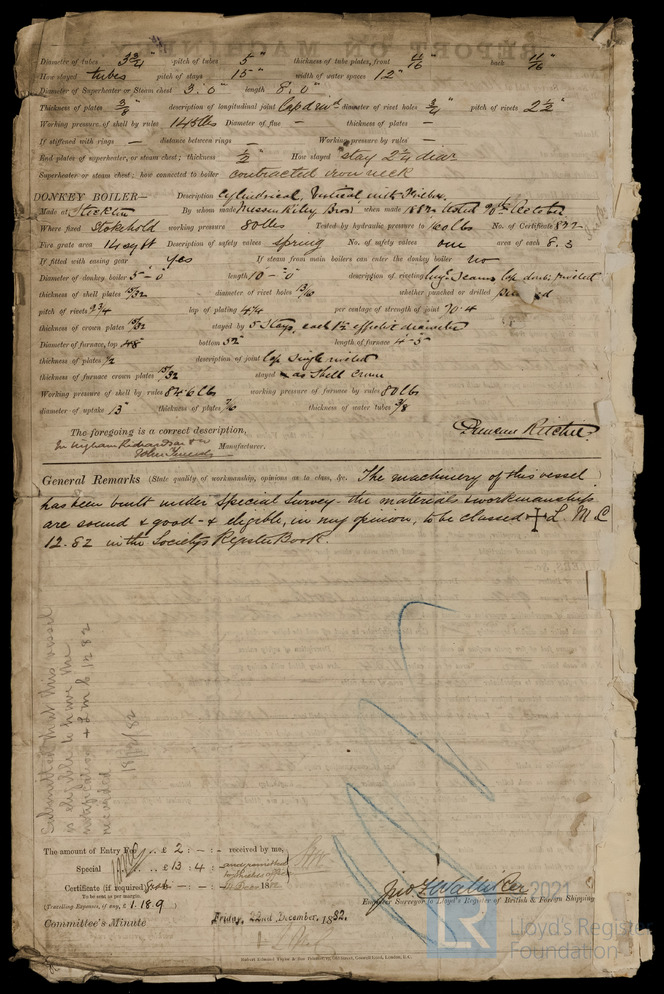 Diameter of tubes 3 3/4" pitch of tubes 5" thickness of tube plates, front 11/16" back 11/16"
How stayed tubes pitch of stays 15" width of water spaces 12"
Diameter of Superheater or Steam chest 3'.0" length 8'.0"
Thickness of plates 3/8" description of longitudinal joint Lap diameter of rivet holes 3/4" pitch of rivets 2 1/2"
Working pressure of shell by rules 145 lbs Diameter of flue — thickness of plates —
If stiffened with rings — distance between rings — Working pressure by rules —
End plates of superheater, or steam chest; thickness 1/2" How stayed stay 2 3/4 diar
Superheater or steam chest; how connected to boiler contracted iron neck
DONKEY BOILER— Description Cylindrical, Vertical, with
Made at Stockton By whom made Messrs Riley Bros when made 1882 tested October
Where fixed Stokehold working pressure 80 lbs Tested by hydraulic pressure to 160 lbs No. of Certificate
Fire grate area 14 sq ft Description of safety valves spring No. of safety valves one area of each 8.3
If fitted with easing gear yes If steam from main boilers can enter the donkey boiler no
Diameter of donkey boiler 5'-0" length 10'-0" description of riveting Seams lap riveted
thickness of shell plates 15/32 diameter of rivet holes 13/16 whether punched or drilled
pitch of rivets 2 3/4 lap of plating 4 1/4 per centage of strength of joint 70.4
thickness of crown plates 15/32 stayed by 5 stays, each 1 1/2 effective diameter
Diameter of furnace, top 48" bottom 52" length of furnace 4'-5"
thickness of plates 1/2 description of joint lap single riveted
thickness of furnace crown plates 15/32 stayed as shell crown
Working pressure of shell by rules 84.6 lbs working pressure of furnace by rules 80 lbs
diameter of uptake 13" thickness of plates 7/16 thickness of water tubes 3/8
The foregoing is a correct description,
Duncan Ritchie
Richardson Manufacturer.
General Remarks (State quality of workmanship, opinions as to class, &c. The machinery of this vessel
has been built under Special Survey - the materials & workmanship
are sound & good - & eligible, in my opinion, to be classed + L M C
12.82 in the Society's Register Book.
Submitted that this vessel
is eligible to have the
notification + L M C 12.82
recorded
18/12/82
The amount of Entry Fee .. £ 2 : - : - received by me,
Special .. £ 13 : 4 : -
Certificate (if required) - : - : 18
To be sent as per margin.
(Travelling Expenses, if any, £ 1.18.9 )
Jno T Walliker
Engineer Surveyor to Lloyd's Register of British & Foreign Shipping
Committee's Minute Friday, 22nd December, 1882.
2021
LR Lloyd's Register
Foundation